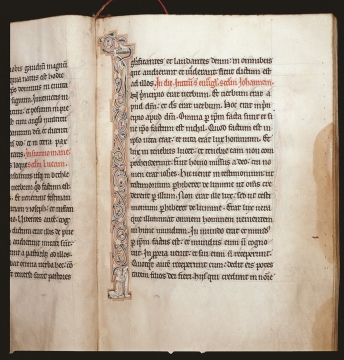 nobis gaudiū magnū
quia natus est hodie
xp̄s dominus in ciuita
signum. Inuenietis in
tum. et positum in pre
est cum angelo multitu
dantiū dm̄ et dicentiū
deo. et in terra pax
tatis. In summo mane
scdm̄ Lucam.
usq; in bethle
uerbum qd̄ factum est
glorificantes et laudantes deum in omnibus
que audierant et uiderant sicut dictum est
ad illos. In die. Initiū s. eūgl. scdm̄ Iohannem.
In principio erat uerbum. Et uerbum erat a
pud dm̄. et ds̄ erat uerbum. Hoc erat in prin
cipio apud dm̄. Omnia p ip̄m facta sunt et si
ne ip̄o factum est nichil. Quod factum est in
ipso uita erat. et uita erat lux hominum. Et
lux in tenebris lucet. et tenebre eam non com
prehenderunt. Fuit homo missus a deo. cui no
men erat ioh̄es. hic uenit in testimonium. ut
testimonium phiberet de lumine. ut om̄s cre
derent p illum. Non erat ille lux. sed ut testi
monium phiberet de lumine. Erat lux uera
que illuminat omnem hominem uenientem
in hunc mundum. In mundo erat et mundus
p ip̄m factus est. et mundus eum n̄ cogno
uit. In ppria uenit. et sui eum n̄ receperunt.
Quotqt aut̄ receperunt eum. dedit eis potes
tatem filios dei fieri. hijs qui credunt in noīe